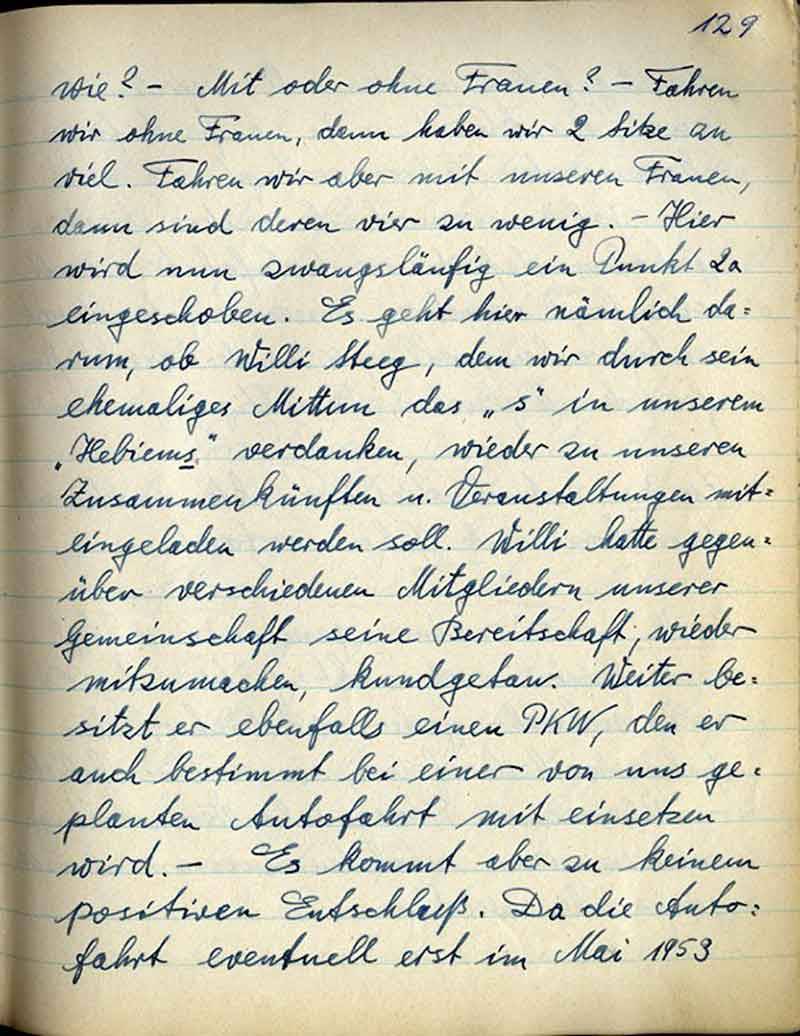 129
wie? – Mit oder ohne Frauen? – Fahren
wir ohne Frauen, dann haben wir 2 Sitze an
viel. Fahren wir aber mit unseren Frauen,
dann sind deren vier zu wenig. – Hier
wird nun zwangsläufig ein Punkt 2a
eingeschoben. Es geht hier nämlich da=
rum, ob Willi Steeg, dem wir durch sein
ehemaliges Mittun das „s“ in unserem
„Hebiems“ verdanken, wieder zu unseren
Zusammenkünften u. Veranstaltungen mit=
eingeladen werden soll. Willi hatte gegen=
über verschiedenen Mitgliedern unserer
Gemeinschaft seine Bereitschaft, wieder
mitzumachen, kundgetan. Weiter be=
sitzt er ebenfalls einen PKW, den er
auch bestimmt bei einer von uns ge=
planten Autofahrt mit einsetzen
wird. – Es kommt aber zu keinem
positiven Entschluß. Da die Auto=
fahrt eventuell erst im Mai 1953